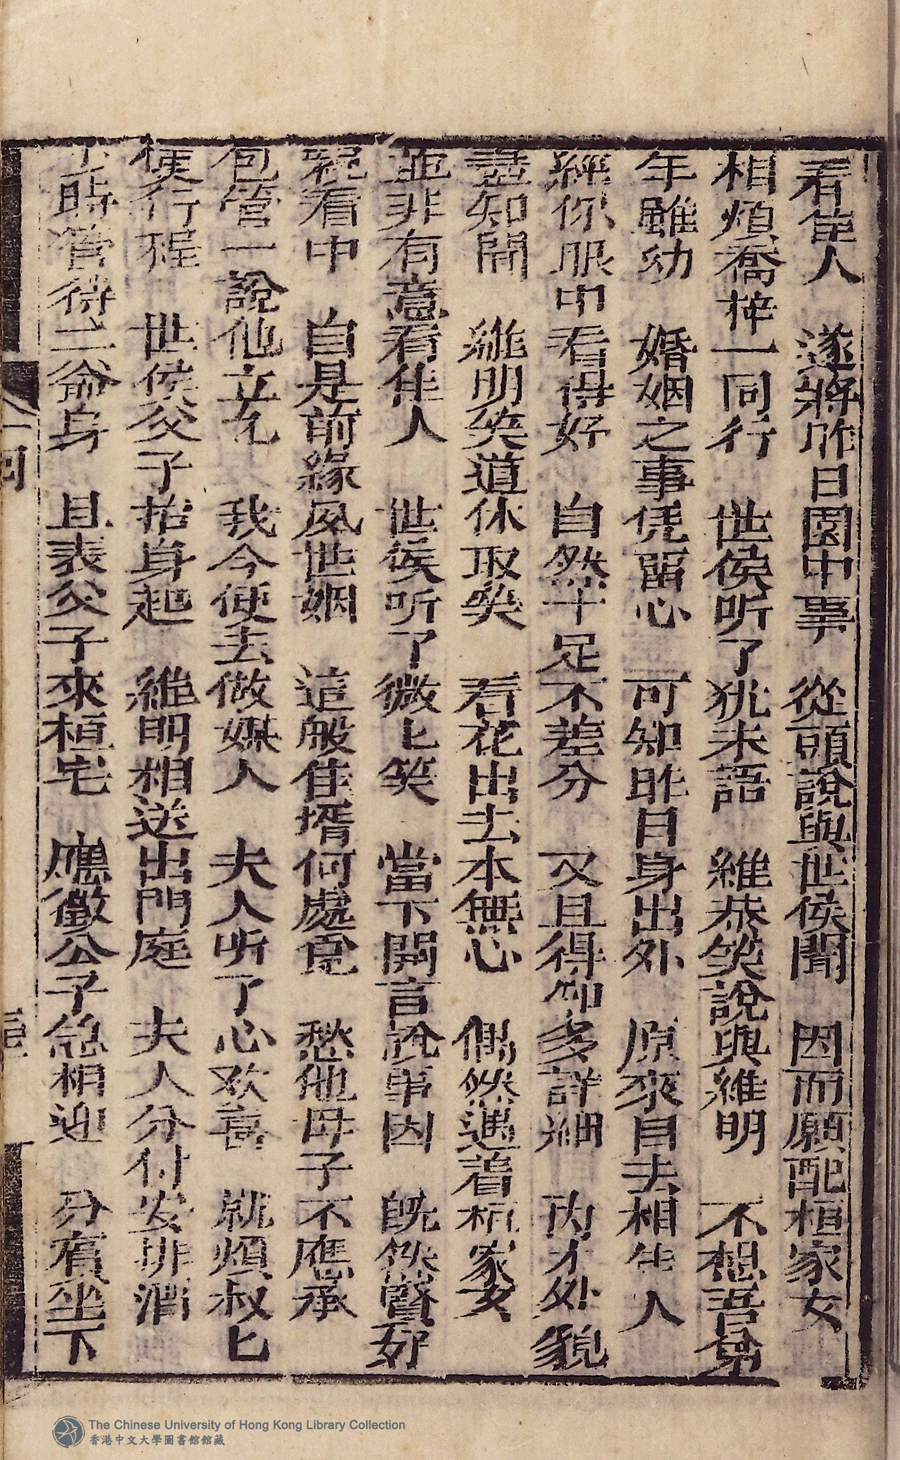 看佳人　遂將昨日園中事　從頭說與世侯聞　因而願配桓家女
相煩喬梓一同行　世侯听了犹未語　維恭笑說與維明　不想吾弟
年雖幼　婚姻之事凭畱心　可知昨日身出外　原來自去相佳人
經你眼中看得好　自然十足不差分　又且得仰多詳細　內才外貌
盡知聞　維明笑道休取笑　看花出去本無心　偶然遇着桓家女
並非有意看佳人　世侯听了微匕笑　當下開言說事因　旣然賢
親看中　自是前緣夙世姻　這般佳壻何處覓　愁他母子不應承
包管一說他立允　我今便去做媒人　夫人听了心欢喜　就煩叔匕
便行程　世侯父子抬身起　維明相送出門庭　夫人分付安排酒
時管待二翁身　且表父子來桓宅　應徵公子急相迎　分賓坐下
The Chinese University of Hong Kong Library Collection
香港中文大學圖書館館藏